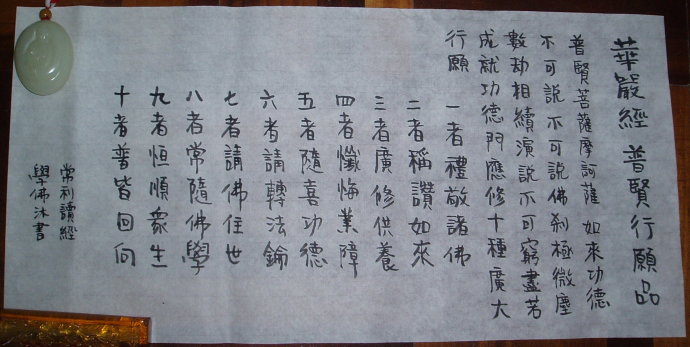 華嚴經 普賢行願品
普賢菩薩摩訶薩 如來功德
不可說不可說佛剎極微塵
數劫相續演說不可窮盡若
成就功德門應修十種廣大
行願 一者禮敬諸佛
二者稱讚如來
三者廣修供養
四者懺悔業障
五者隨喜功德
六者請轉法輪
七者請佛住世
八者常隨佛學
九者恒順眾生
十者普皆回向
常利讀經
學佛沐書